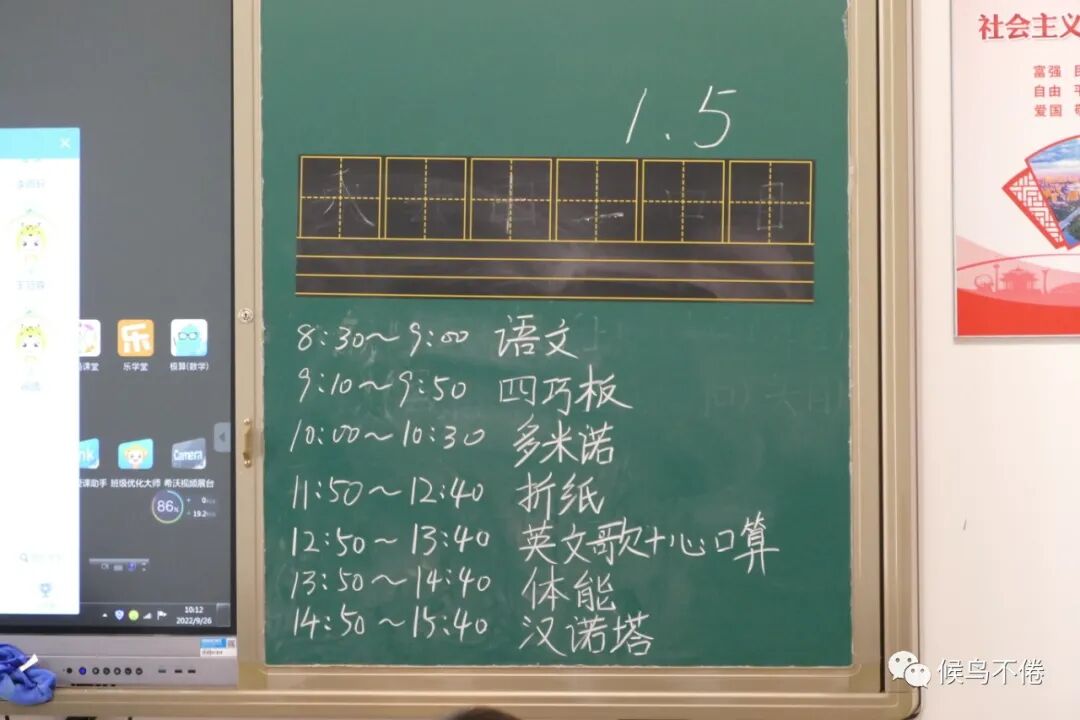 社会主义
富强
自由
爱国
1.5
8:30~9:00 语文
9:10~9:50 四巧板
10:00~10:30 多米诺
11:50~12:40 折纸
12:50~13:40 英文歌+心口算
13:50~14:40 体能
14:50~15:40 汉诺塔
课堂 乐学堂 极算(数学)
Camera
课助手 班级优化大师 希沃视频展台
86%
10:12
2022/9/26
候鸟不倦